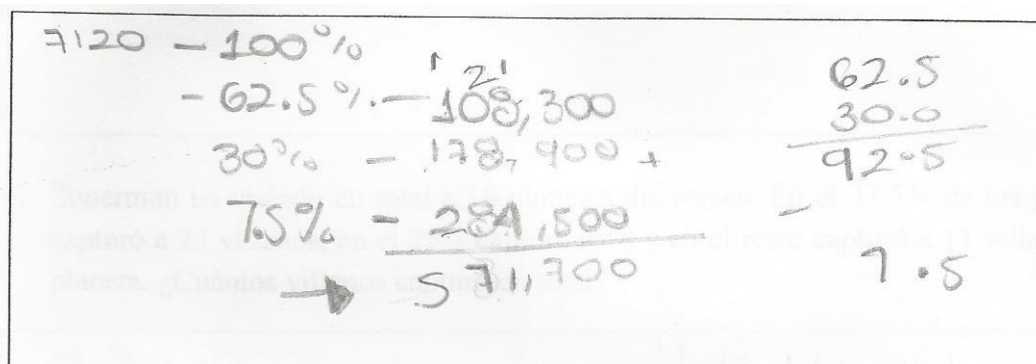 7120 - 100%
1 2 1
- 62.5% - 108,300
30% - 178,900 +
7.5% - 284,500
→ 571,700
62.5
30.0
92.5
-
7.5
Superman ha visitado en total a planetas diferentes. En el 32.5% de los
capturó a 23 villanos, en el 25% y en el resto capturó a 11
planeta. ¿Cuántos villanos